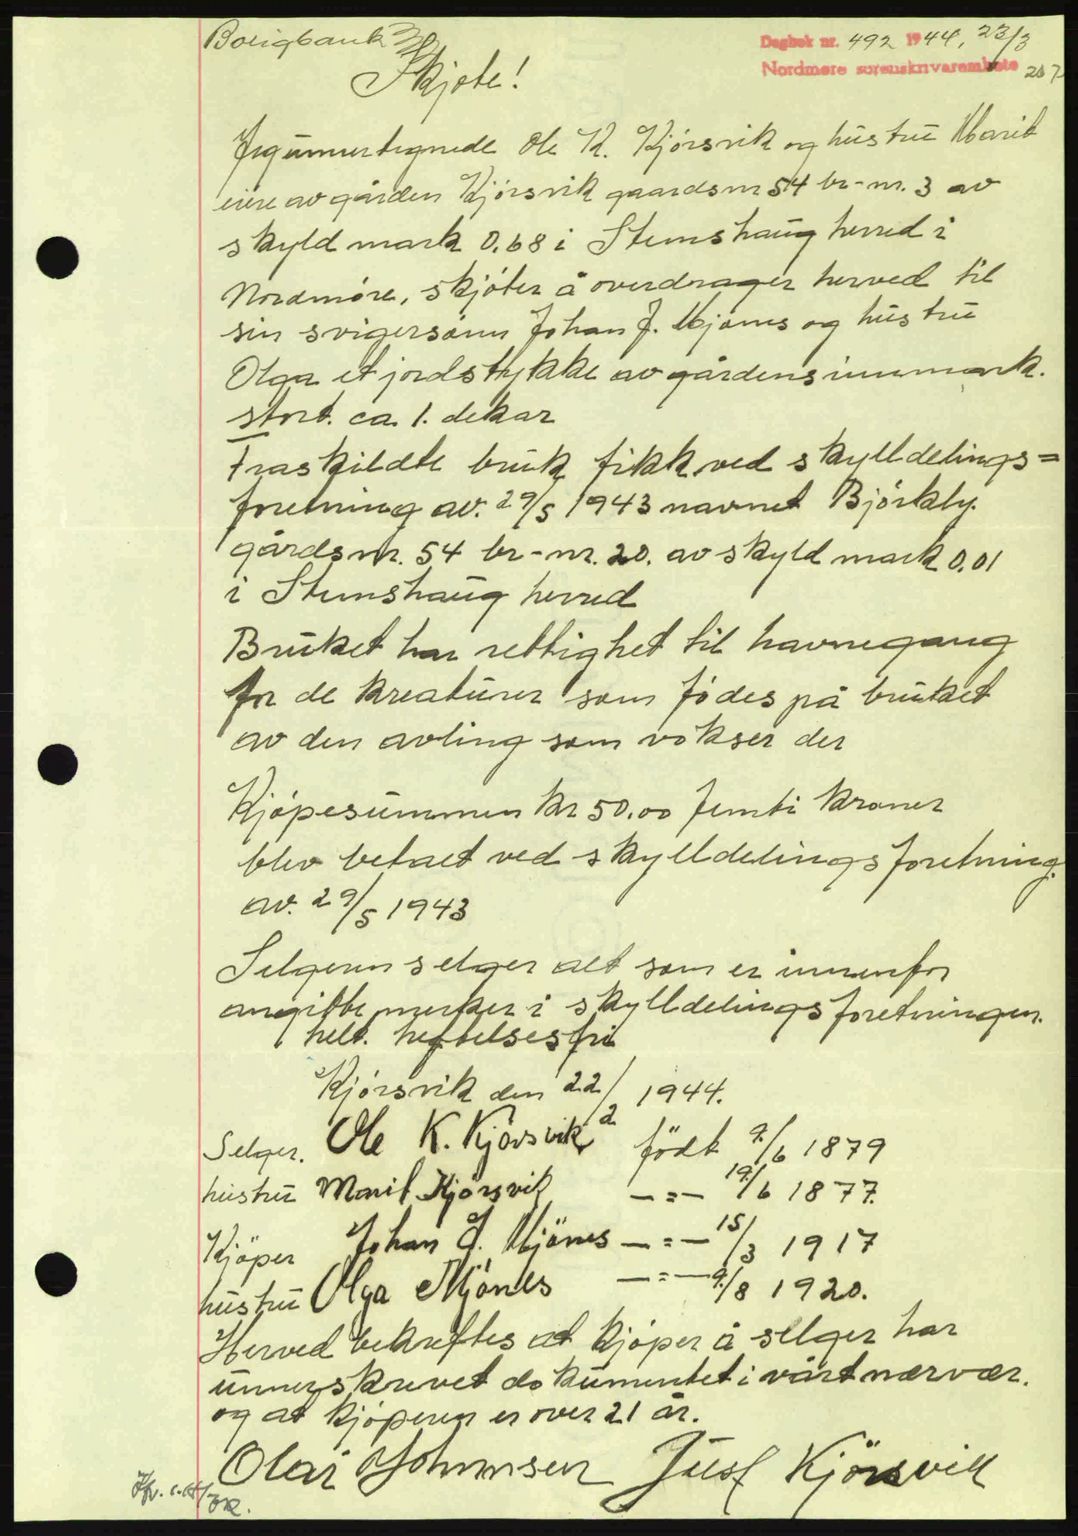 Boligbank
Dagbok nr. 492 1944, 23/3
Nordmøre sorenskrivarembete
207
Skjøte!
Jeg unnertegnede Ole K. Kjörsvik og hüstrü Marit
eiere av gården Kjörsvik gaardsnr 54 br-nr. 3 av
skyld mark 0.68 i Stemshaüg herred i
Nordmöre, skjöter å overdrager herved til
sin svigersönn Johan J. Mjönes og hüstrü
Olga et jordstykke av gårdens innmark.
stort. ca. 1. dekar
Fraskildte brük fikk ved skylldelings=
foretning av. 29/5 1943 navnet Björkly.
gårdsnr. 54 br-nr. 20. av skyld mark 0.01
i Stemshaüg herred
Brüket har rettighet til havnegang
for de kreatürer som födes på brüket
av den avling som vokser der
Kjöpesümmen kr 50.00 femti kroner
blev betalt ved skylldelingsforetning.
av. 29/5 1943
Selgeren selger alt som er innenfor
angitte merker i skylldelingsforetningen.
helt. heftelsesfri
Kjörsvik den 22/2 1944.
Selger. Ole K. Kjörsvik födt 9/6 1879
hüstrü Marit Kjörsvik -=- 19/6 1877.
Kjöper Johan J. Mjönes -=- 15/3 1917
hüstrü Olga Mjönes -=- 9/8 1920.
Herved bekreftes at kjöper å selger har
ünnerskrevet doküments i vårt nærvær.
og at kjöperen er over 21 år.
Olav Johnnsen Jüst Kjörsvik